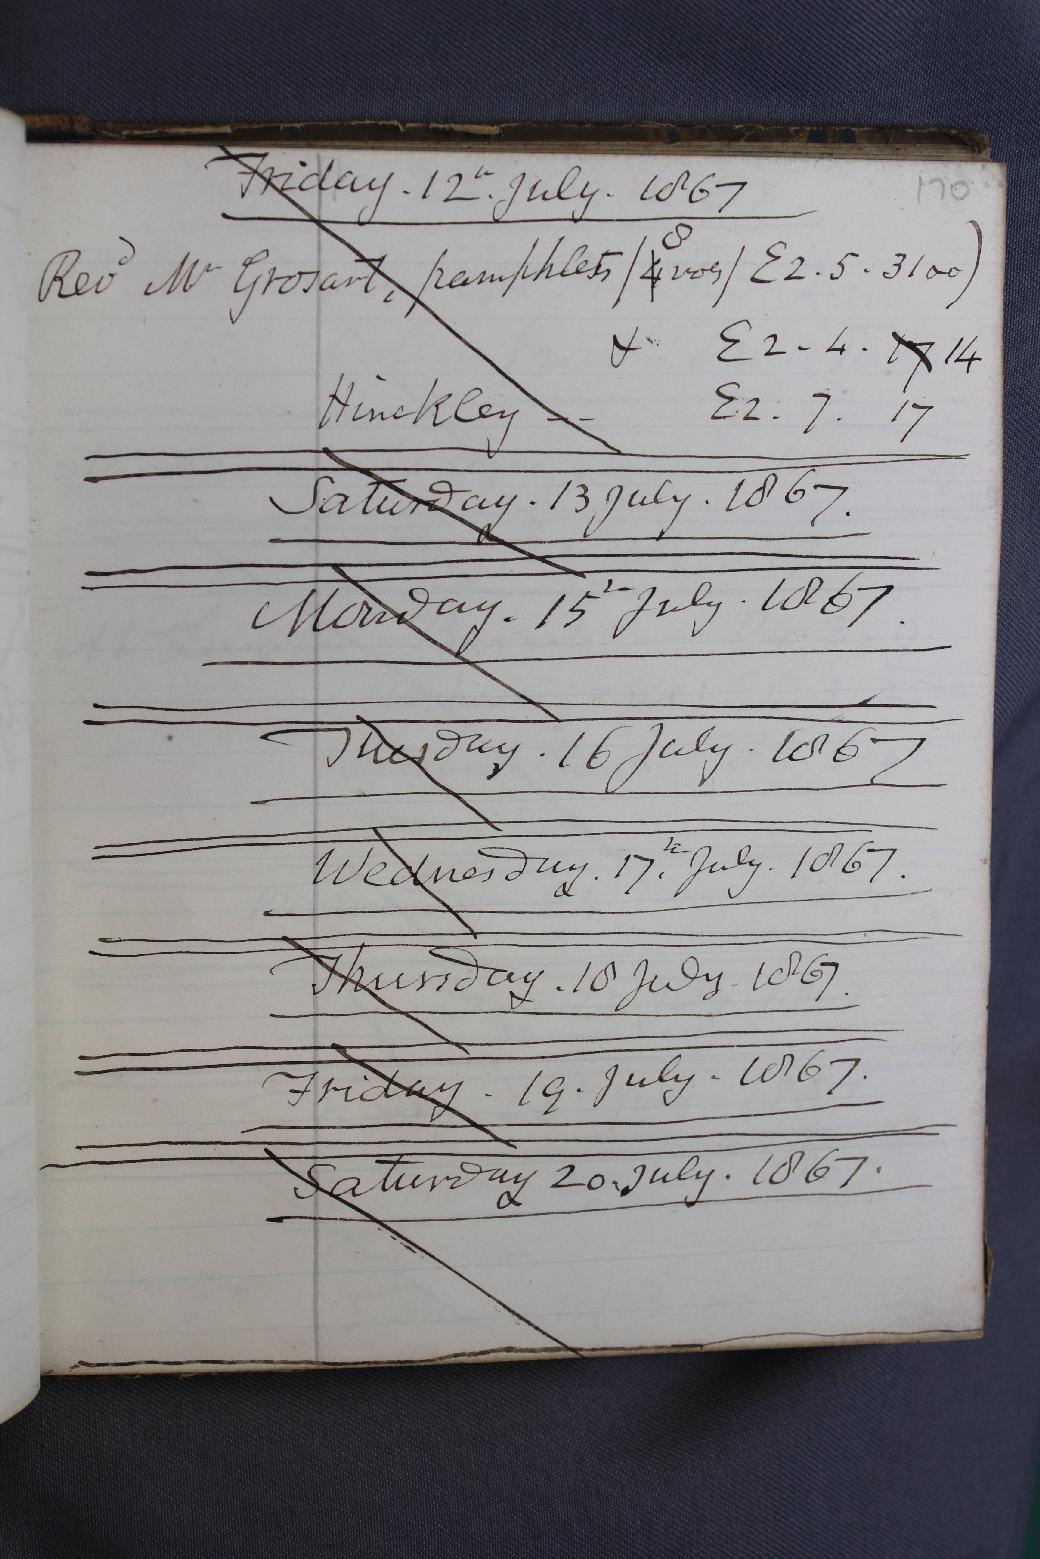 170
Friday. 12th. July. 1867
Revd Mr Grosart, pamphlets / 4 8 vos / E2.5.3100)
& E2.4.17 14
Hinckley — E2.7.17
Saturday. 13 July. 1867.
Monday. 15th July. 1867.
Tuesday. 16 July. 1867
Wednesday. 17th. July. 1867.
Thursday. 18 July. 1867.
Friday. 19. July. 1867.
Saturday 20. July. 1867.